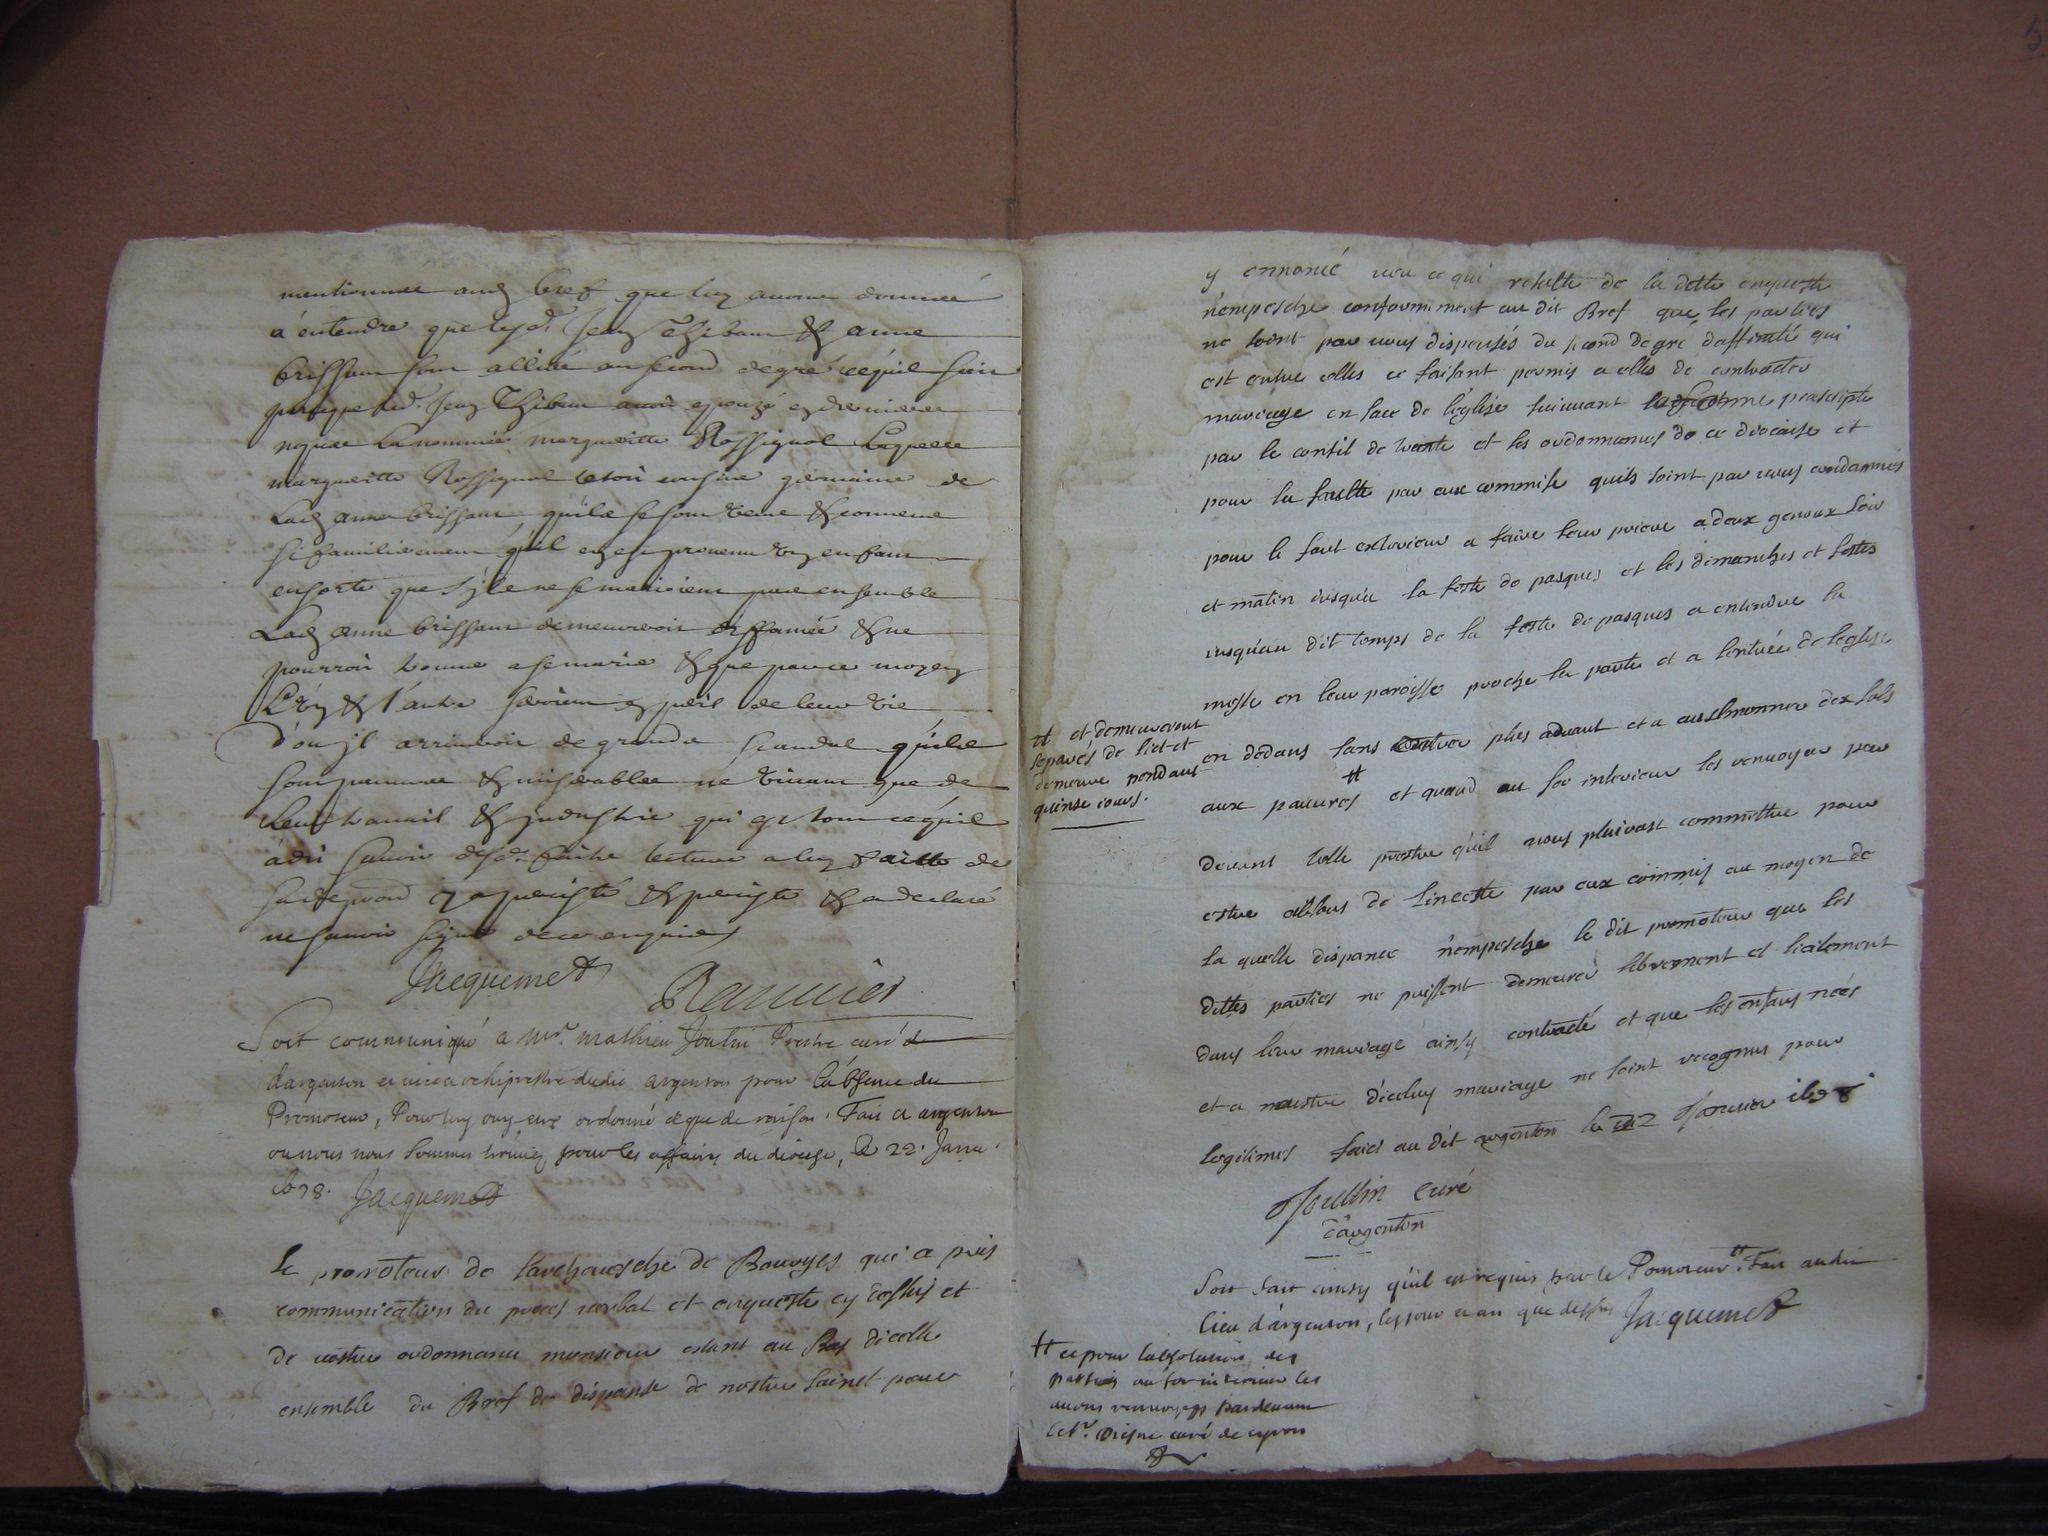 mentionnée aud bref que luy auons donnée
a entendre que lesd. Jean Thibau & anne
brissau son allié au second degré ce quil scait
parceque led. Jean Thibau auoit epouzé en dernieres
nopces La nommée margueritte Rossignol Laquelle
margueritte Rossignol estoit cousine germaine de
Lad anne brissau, quils se sont veus & connens
si familierement quil en est prouenu un enfant
ensorte que s'ils ne se marioient pas ensemble
Lad anne brissau demeureroit diffamée & ne
pourroit trouuer a se marier & que par ce moyen
L'un & l'autre seroient en peril de leur vie
d'ou jl arriueroit de grands scandal quils
sont pauures & miserables ne viuant que de
Leur trauail & industrie qui est tout ce quil
a dit scauoir desd. faits lecture a luy faitte de
sa deposon y a persisté & persiste & a declaré
ne scauoir signer de ce enquis
Jacquemet
Soit communiqué a mr. mathieu Joulin Prestre curé d
dargenton et vice archiprestre dudit argenton pour l'absence du
Promoteur, Pour luy ouy estre ordonné ce que de raison. Fait a argenton
ou nous nous sommes trouuez pour les affaires du diocese, le 22. Janu.
1678. Jacquemet
Le promoteur de larcheuesche de Bourges qui a pris
communication du proces verbal et enqueste cy dessus et
de vostre ordonnance monsieur estant au bas dicelle
ensemble du Bref de dispanse de nostre sainct pere
y ennoncé veu ce qui resulte de la ditte enqueste
n'empesche conformement au dit Bref que les parties
ne soint par vous dispensés du second degré daffinité qui
est entre elles ce faisant permis a elles de contracter
mariage en face de leglise suiuant la forme prescripte
par le consil de trante et les ordonnances de ce diocaise et
pour la faulte par eux commise quils soint par vous condamnés
pour le fort exterieur a faire leur priere a deux genoux soir
et matin jusqua la feste de pasques et les dimanches et festes
jusquau dit temps de la feste de pasques a entendre la
messe en leur paroisse proche la porte et a lentrée de leglise
en dedans sans entrer plus aduant et a aulmonner dix sols
aux pauures # et quand au for interieur les renuoyer par
# et demeureront
separés de lict et
demeure pendant
quinse iours.
deuant telle prestre qu'il vous plairast commettre pour
estre absous de linceste par eux commis au moyen de
la quelle dispance n'empesche le dit promoteur que les
dittes parties ne puissent demeurer librement et licitement
dans leur mariage ainsy contracté et que les enfans nées
et a naistre d'iceluy mariage ne soint recognus pour
legitimes faict au dit argenton le 22 Januier 1678
Joullin curé
d'argenton
Soit fait ainsy qu'il est requis par le Promoteur. # Fait audit
lieu d'argenton, les jour et an que dessus Jacquemet
# et pour l'absolution des
parties au for interieur les
auons renuoyez pardeuant
curé de